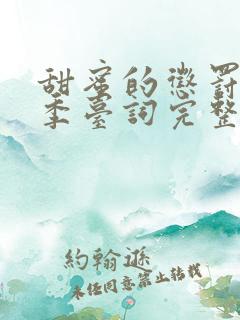 甜蜜的懲罰
季臺詞完整
約翰遜
未经同意禁止转载